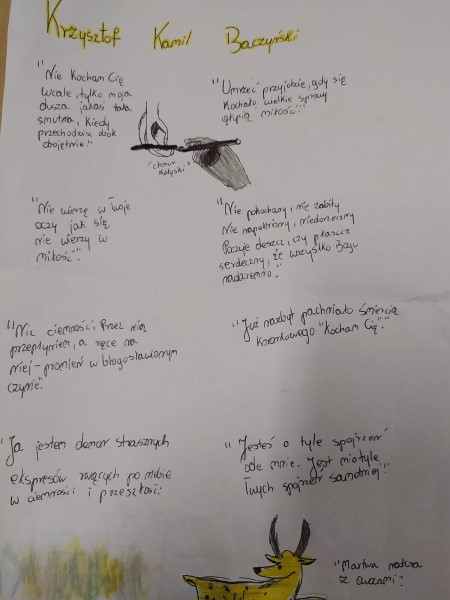 Krzysztof Kamil Baczyński
"Nie Kocham Cię
wcale, tylko moja
dusza jakaś taka
smutna, kiedy
przechodzisz obok
obojętnie."
"Umrzeć przyjdzie, gdy się
kochało wielkie sprawy
głupią miłością."
"chmur
Kołyski"
"Nie wierzę w Twoje
oczy jak się
nie wierzy w
miłość."
"Nie pokochany, nie zabity
Nie napełniony, niedorzeczny
Poczuje deszcz, czy płaszcz
serdeczny, że wszystko Bogu
nadaremno."
"Nic ciemności. Przez nią
przepłyniem, a ręce na
niej - promień w błogosławionym
czynie."
"Już nazbyt pachniało śmiercią
koronkowego "Kocham Cię"."
"Ja jestem demon strasznych
ekspresów rwących po niebie
w ciemności i przeszłości
"Jesteś o tyle spojrzeń
ode mnie. Jest mi o tyle
Twych spojrzeń samotniej."
"Martwa natura
z oczami"